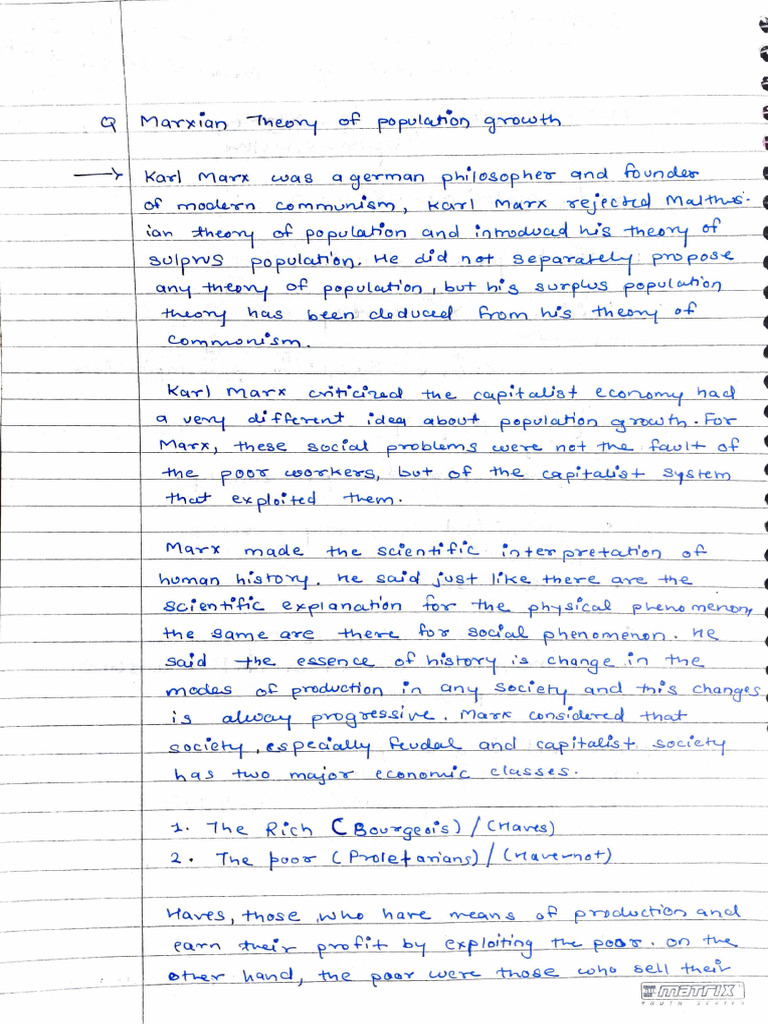 Q Marxian Theory of population growth
→ Karl Marx was a german philosopher and founder
of modern communism, Karl Marx rejected Malthus-
ian theory of population and introduced his theory of
sulprus population. He did not separately propose
any theory of population, but his surplus population
theory has been deduced from his theory of
commonism.
Karl Marx criticized the capitalist economy had
a very different idea about population growth. For
Marx, these social problems were not the fault of
the poor workers, but of the capitalist system
that exploited them.
Marx made the scientific interpretation of
human history. He said just like there are the
scientific explanation for the physical phenomenon,
the same are there for social phenomenon. He
said the essence of history is change in the
modes of production in any society and this changes
is alway progressive. Marx considered that
society, especially feudal and capitalist society
has two major economic classes.
1. The Rich (Bourgeois) / (Haves)
2. The poor (Proletarians) / (Havenot)
Haves, those who have means of production and
earn their profit by exploiting the poor. on the
other hand, the poor were those who sell their
matrix
YOUTH SERIES